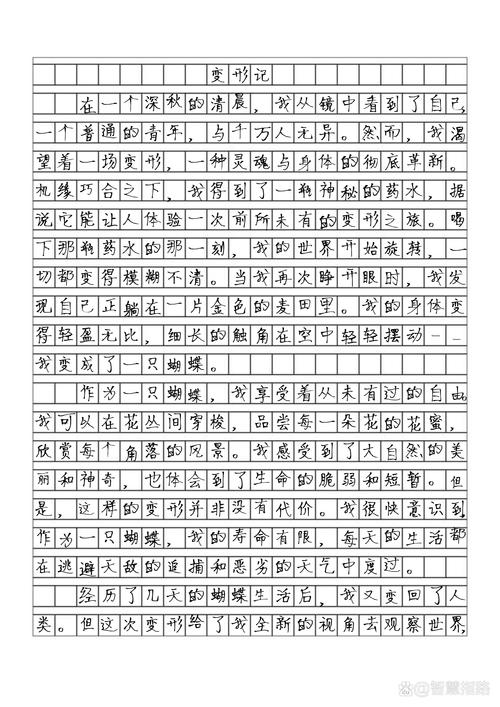 变形记
在一个深秋的清晨，我从镜中看到了自己，
一个普通的青年，与千万人无异。然而，我渴
望着一场变形，一种灵魂与身体的彻底革新。
机缘巧合之下，我得到了一瓶神秘的药水，据
说它能让人体验一次前所未有的变形之旅。喝
下那瓶药水的那一刻，我的世界开始旋转，一
切都变得模糊不清。当我再次睁开眼时，我发
现自己正躺在一片金色的麦田里。我的身体变
得轻盈无比，细长的触角在空中轻轻摆动——
我变成了一只蝴蝶。
作为一只蝴蝶，我享受着从未有过的自由。
我可以在花丛间穿梭，品尝每一朵花的花蜜，
欣赏每个角落的风景。我感受到了大自然的美
丽和神奇，也体会到了生命的脆弱和短暂。但
是，这样的变形并非没有代价。我很快意识到，
作为一只蝴蝶，我的寿命有限，每天的生活都
在逃避天敌的追捕和恶劣的天气中度过。
经历了几天的蝴蝶生活后，我又变回了人
类。但这次变形给了我全新的视角去观察世界，
智慧指路